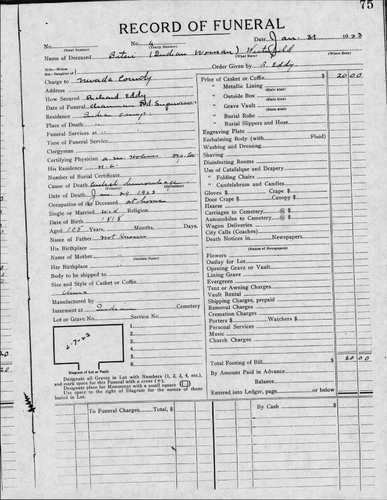 75
RECORD OF FUNERAL
No. 4 Date Jan. 31 1923
(Total Number) (Yearly Number)
Name of Deceased (Indian Woman)
Order Given by R. Eddy
Charge to Nevada County
Address
How Secured Richard Eddy
Date of Funeral Chairman Bd Supervisors
Residence Indian Camp
Place of Death
Funeral Services at
Time of Funeral Service
Clergyman
Certifying Physician
His Residence N.C.
Number of Burial Certificate
Cause of Death
Date of Death Jan 1923
Occupation of the Deceased at home
Single or Married Wid Religion
Date of Birth 1818
Aged 105 Years, Months, Days.
Name of Father Not Known
His Birthplace
Name of Mother
Her Birthplace
Body to be shipped to
Size and Style of Casket or Coffin
Manufactured by
Interment at Indian Cemetery
Lot or Grave No. Section No.
1.
2.
3.
4.
5.
6.
Diagram of Lot or Vault
Designate all Graves in Lot with Numbers (1, 2, 3, 4, etc.),
and mark space for this Funeral with a cross (+).
Designate place for Monument with a small square
Use space to the right of Diagram for the names of those
buried in Lot.
To Funeral Charges, Total $
Price of Casket or Coffin $ 20 00
" Metallic Lining
" Outside Box
" Grave Vault
" Burial Robe
" Burial Slippers and Hose
Engraving Plate
Embalming Body (with Fluid)
Washing and Dressing
Shaving
Disinfecting Rooms
Use of Catafalque and Drapery
" Folding Chairs
" Candelabrum and Candles
Gloves $ Crape $
Door Crape $ Canopy $
Hearse
Carriages to Cemetery @ $
Automobiles to Cemetery @ $
Wagon Deliveries
City Calls (Coaches)
Death Notices in Newspapers
(Names of Newspapers)
Flowers
Outlay for Lot
Opening Grave or Vault
Lining Grave
Evergreen
Tent or Awning Charges
Vault Rental
Shipping Charges, prepaid
Removal Charges
Cremation Charges
Porters $ Watchers $
Personal Services
Music
Church Charges
Total Footing of Bill $ 20 00
By Amount Paid in Advance
Balance
Entered into Ledger, page or below
By Cash $